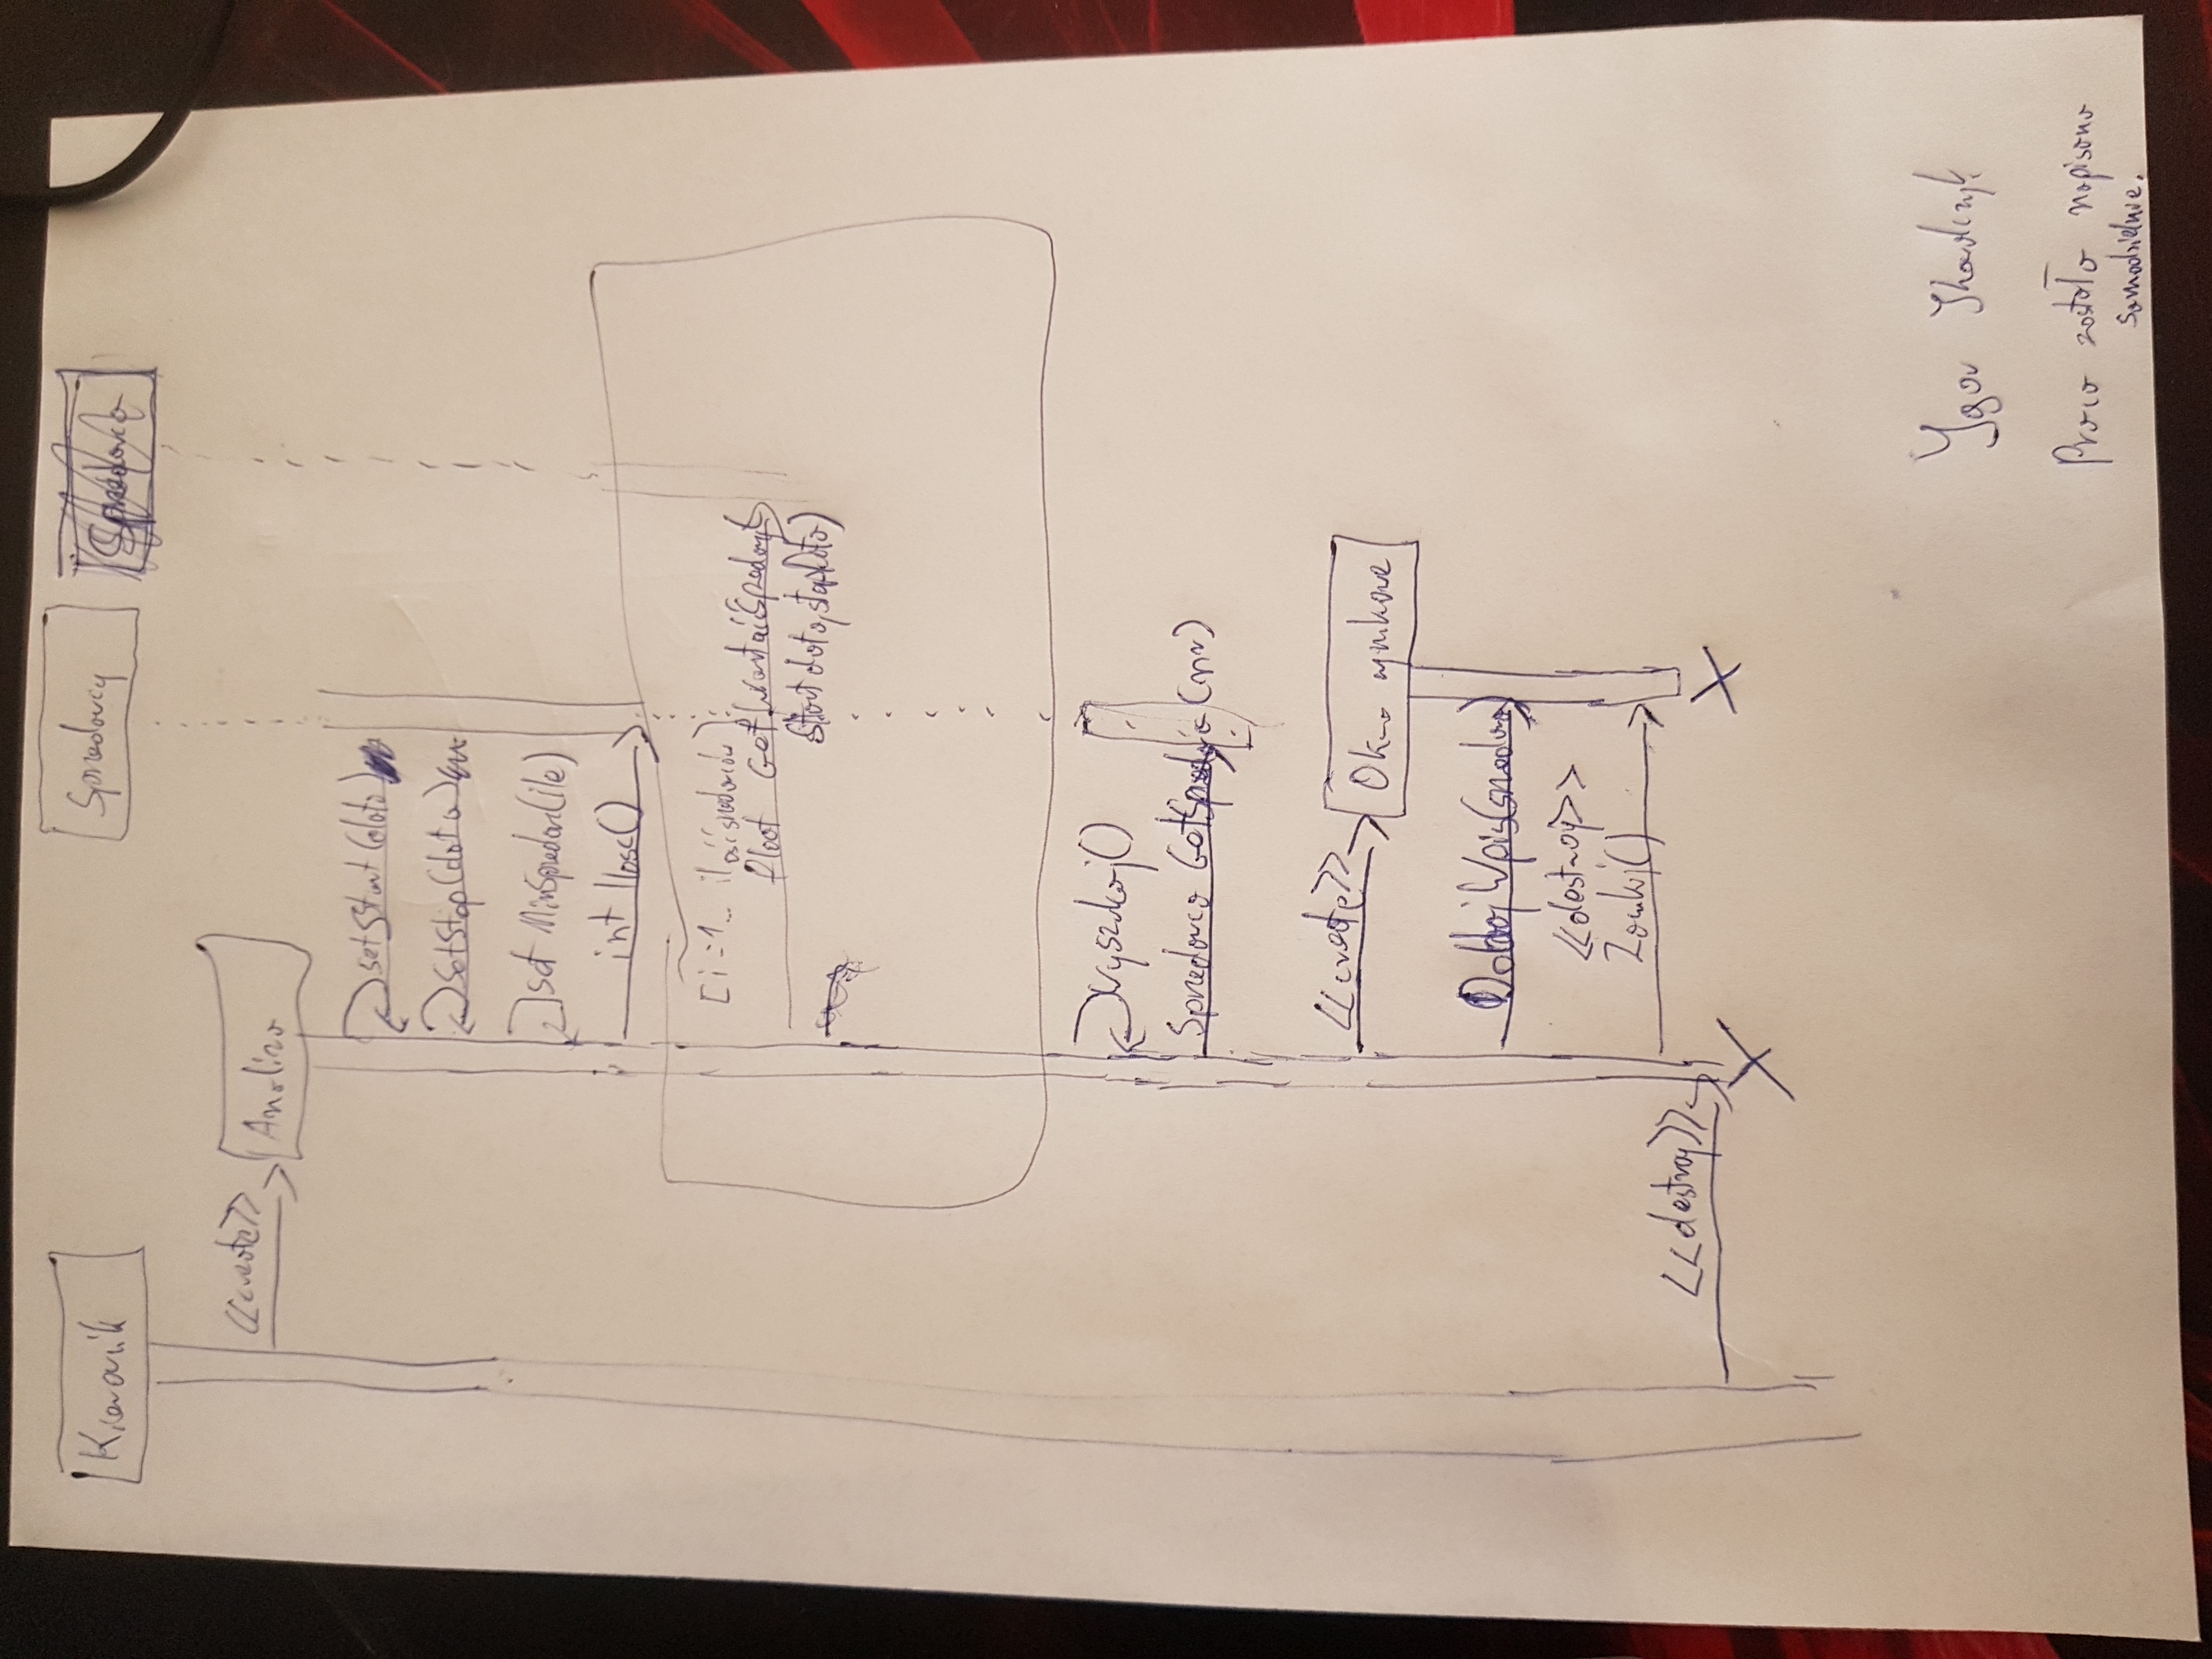 Kierownik
Sprzedawcy
Sprzedawca
<<create>>
Analiza
setStart(data)
setStop(data)
set MinSprzedaz(ile)
int Ilosc()
[i=1.. ilośćsprzedawców]
float GetWartośćSprzedazy(
startdata, stopdata)
Wyszukaj()
Sprzedawca GetSprzedawca(nr)
<<create>>
Okno wynikowe
Dodaj Wpis(sprzedawca)
<<destroy>>
Zamknij()
<<destroy>>
Ygor
Praca została napisana
samodzielnie.